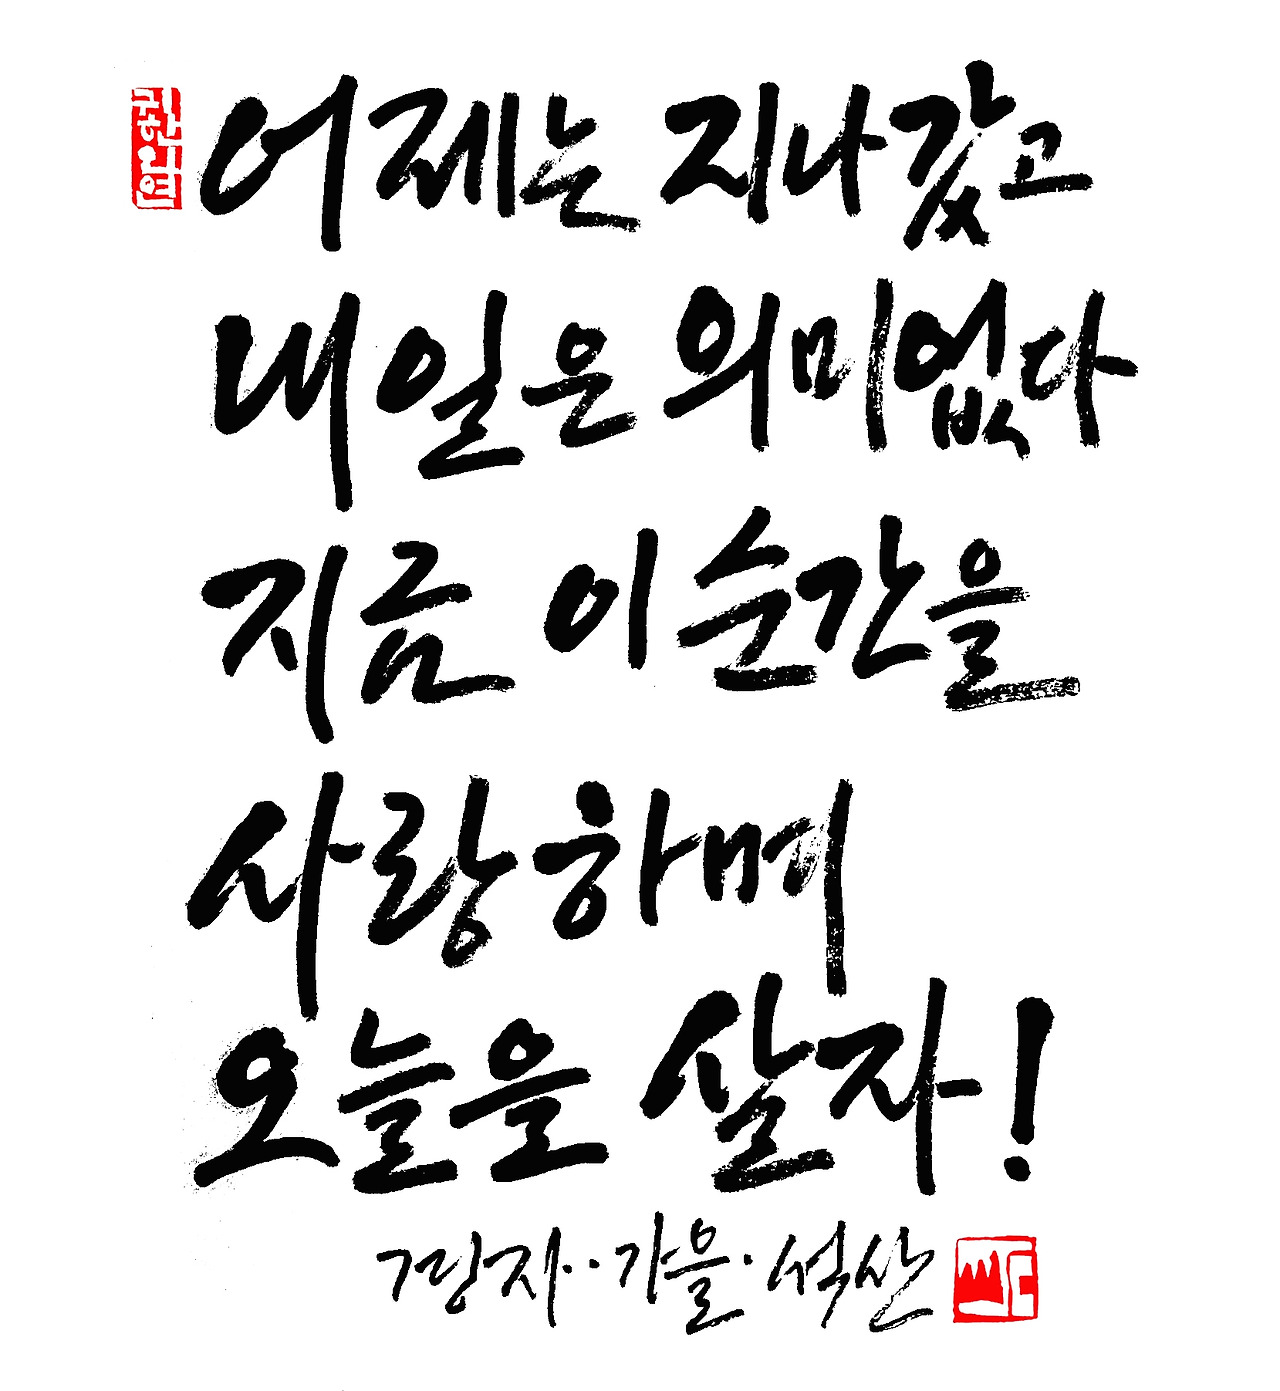 어제는 지나갔고
내일은 의미없다
지금 이 순간을
사랑하며
오늘을 살자!
경자·가을·석산